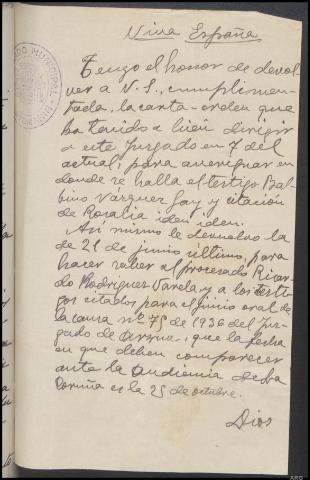 Viva España
Tengo el honor de devol-
ver a V.S., cumplimen-
tada, la carta-orden que
ha tenido a bien dirigir
a este Juzgado en 7 del
actual, para averiguar en
donde se halla el testigo Bal-
bino Vázquez Gay y citación
de Rosalia iden iden.
Asi mismo le devuelvo la
de 21 de junio último, para
hacer saber al procesado Ricar-
do Rodriguez Varela y a los testi-
gos citados para el juicio oral de
la causa nº 75 de 1936 del Juz-
gado de Arzua, que la fecha
en que deben comparecer
ante la Audiencia de La
Coruña es la 25 de octubre.
Dios
MUNICIPAL